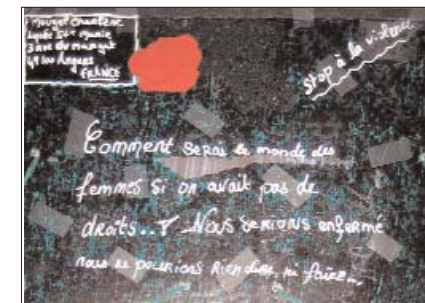 Mougel Charlène
Lycée Ste Marie
3 rue du margat
49100 Angers
FRANCE
Stop à la violence
Comment seras le monde des
femmes si on avait pas de
droits..? Nous serions enfermé
nous ne pourions rien dire, ni faire...